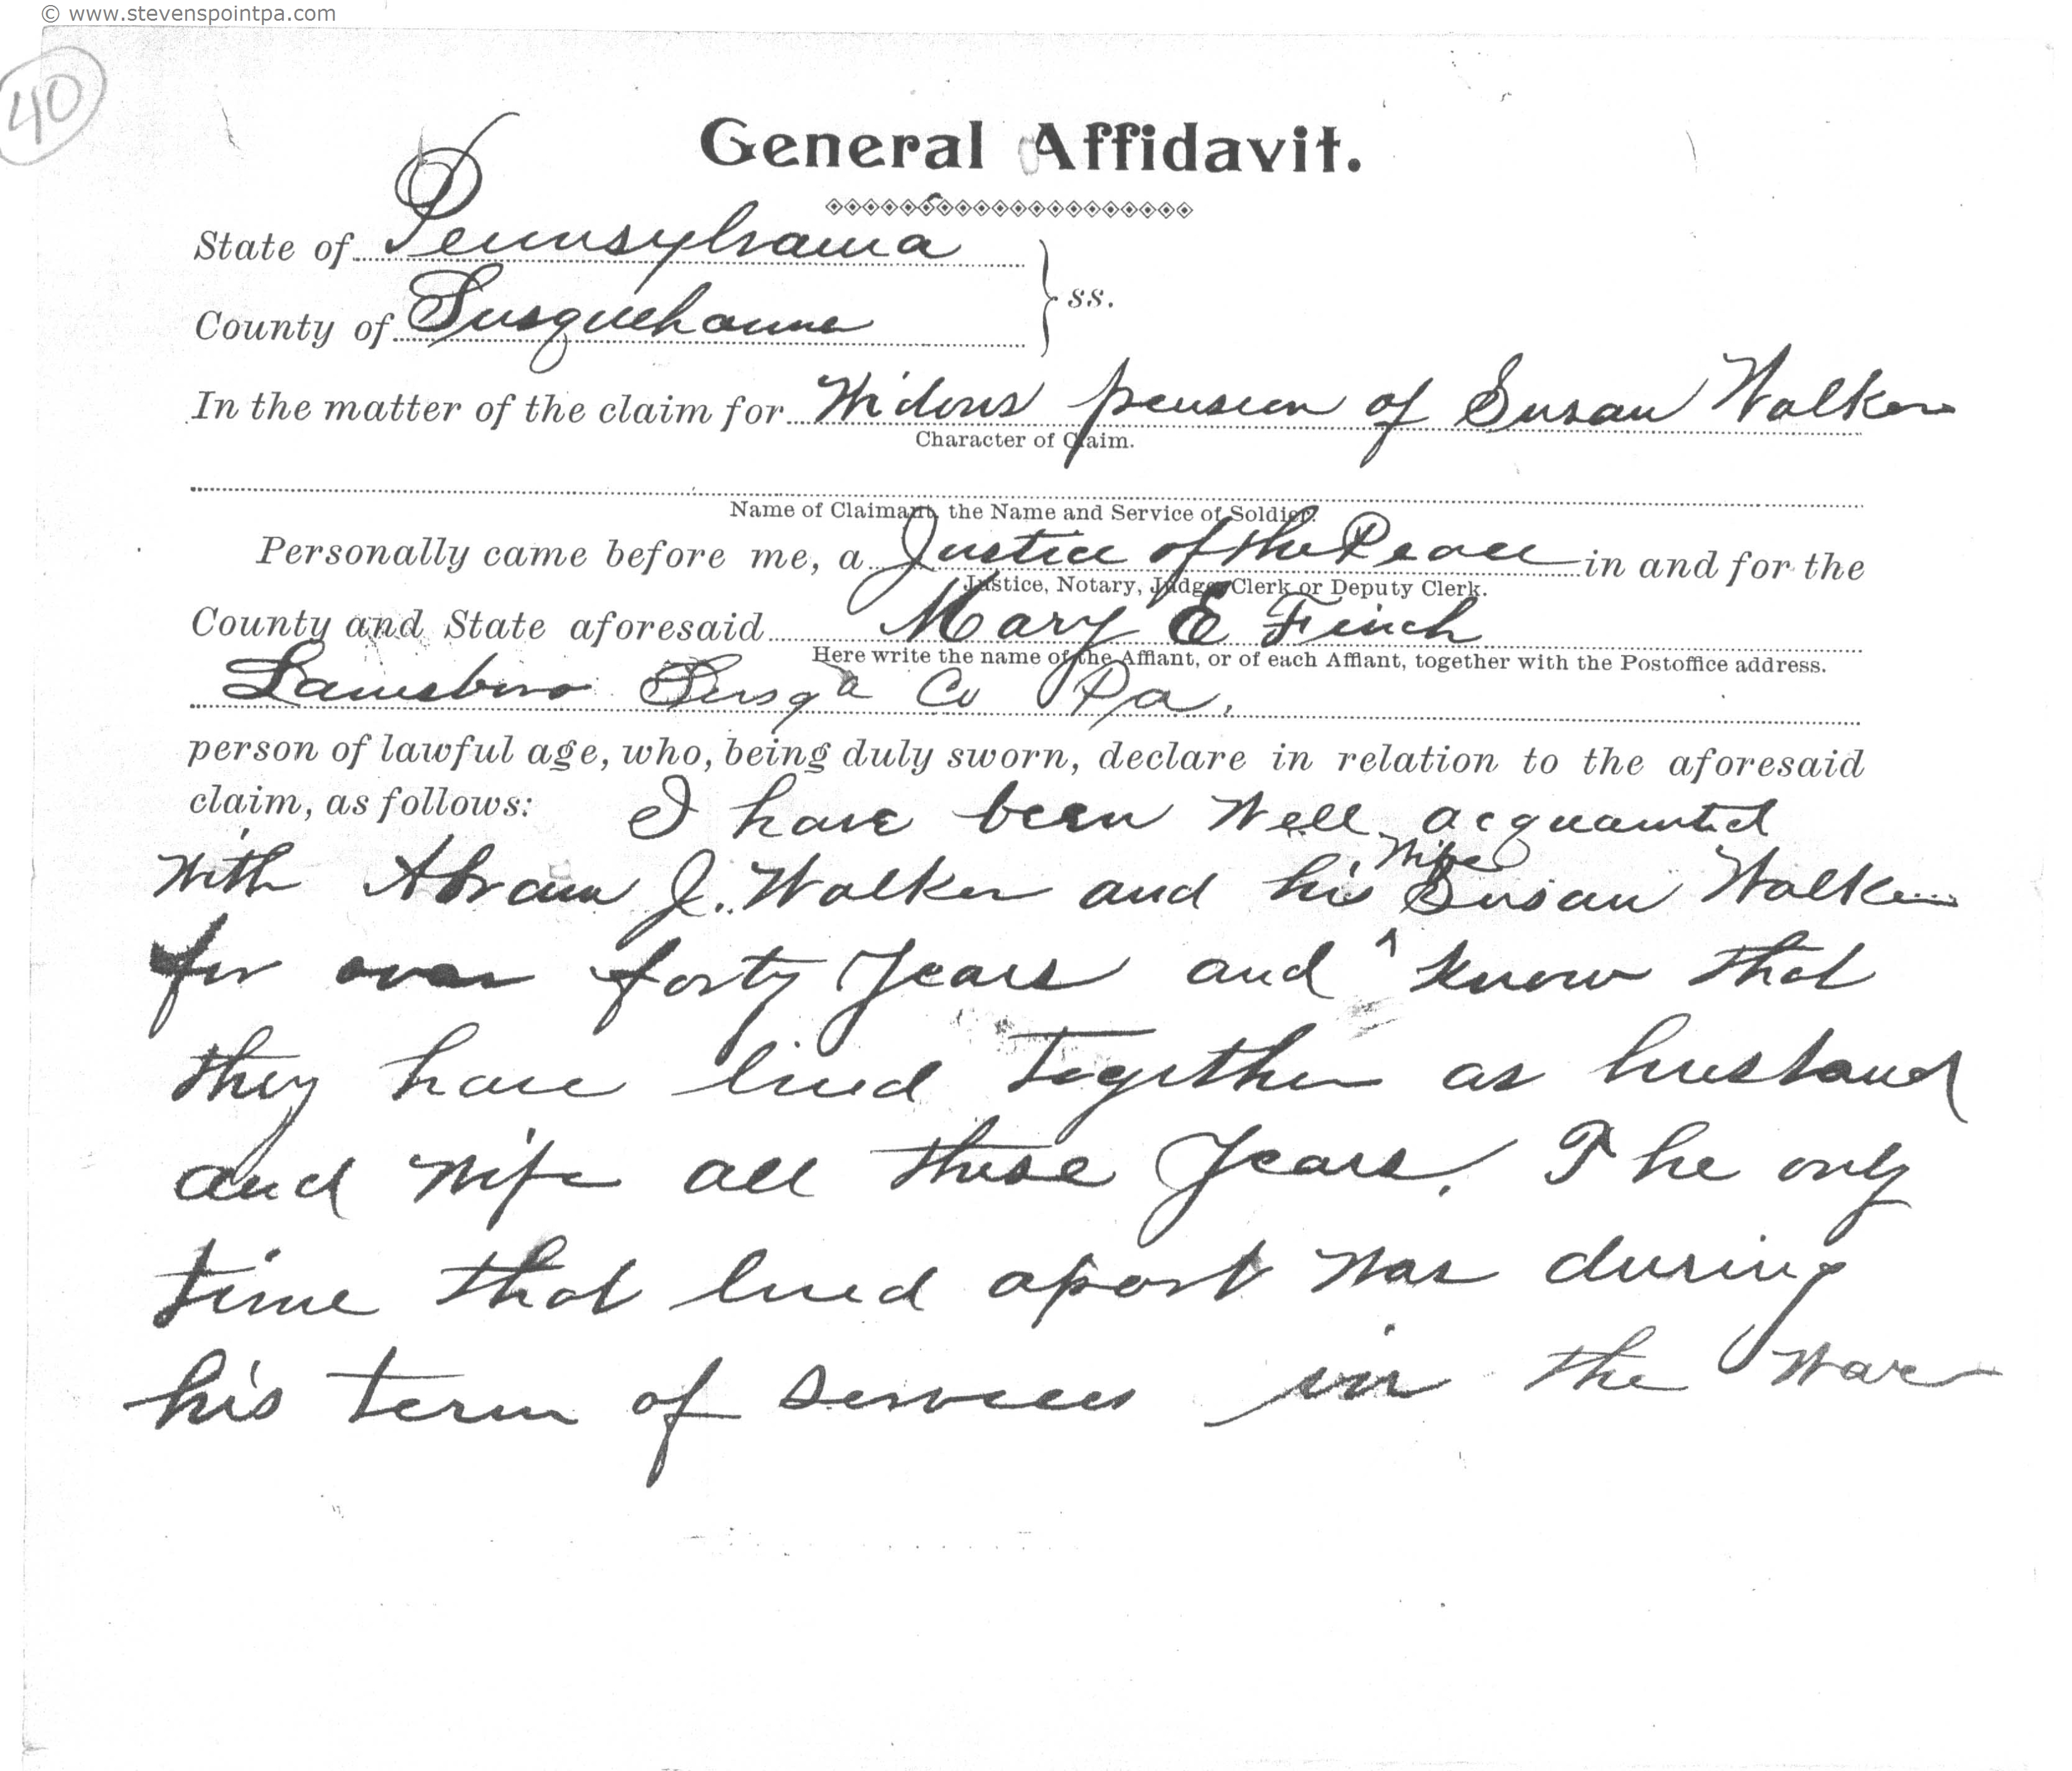 © www.stevenspointpa.com
40
General Affidavit.
State of Pennsylvania
County of Susquehanna } ss.
In the matter of the claim for Widows pension of Susan Walker
Character of Claim.
Name of Claimant, the Name and Service of Soldier.
Personally came before me, a Justice of the Peace in and for the
Justice, Notary, Judge, Clerk or Deputy Clerk.
County and State aforesaid Mary E Finch
Here write the name of the Affiant, or of each Affiant, together with the Postoffice address.
Lanesboro Susqa Co Pa.
person of lawful age, who, being duly sworn, declare in relation to the aforesaid
claim, as follows: I have been well acquainted
with Abram J. Walker and his wife Susan Walker
for over forty years and ^ know that
they have lived together as husband
and wife all these years. The only
time that lived apart was during
his term of services in the war